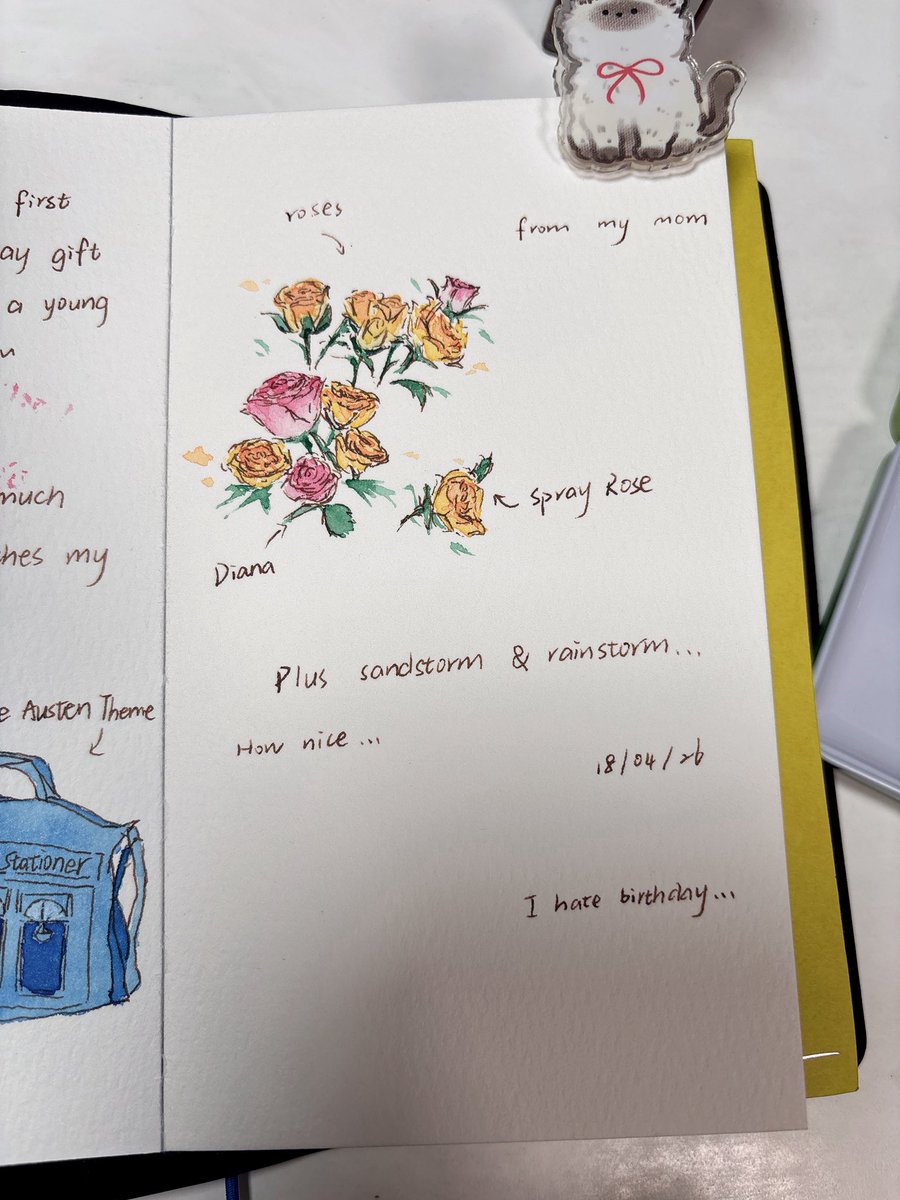 first
ay gift
a young
much
hes my
e Austen Theme
Stationer
roses
from my mom
Spray Rose
Diana
Plus sandstorm & rainstorm...
How nice...
18/04/26
I hate birthday...